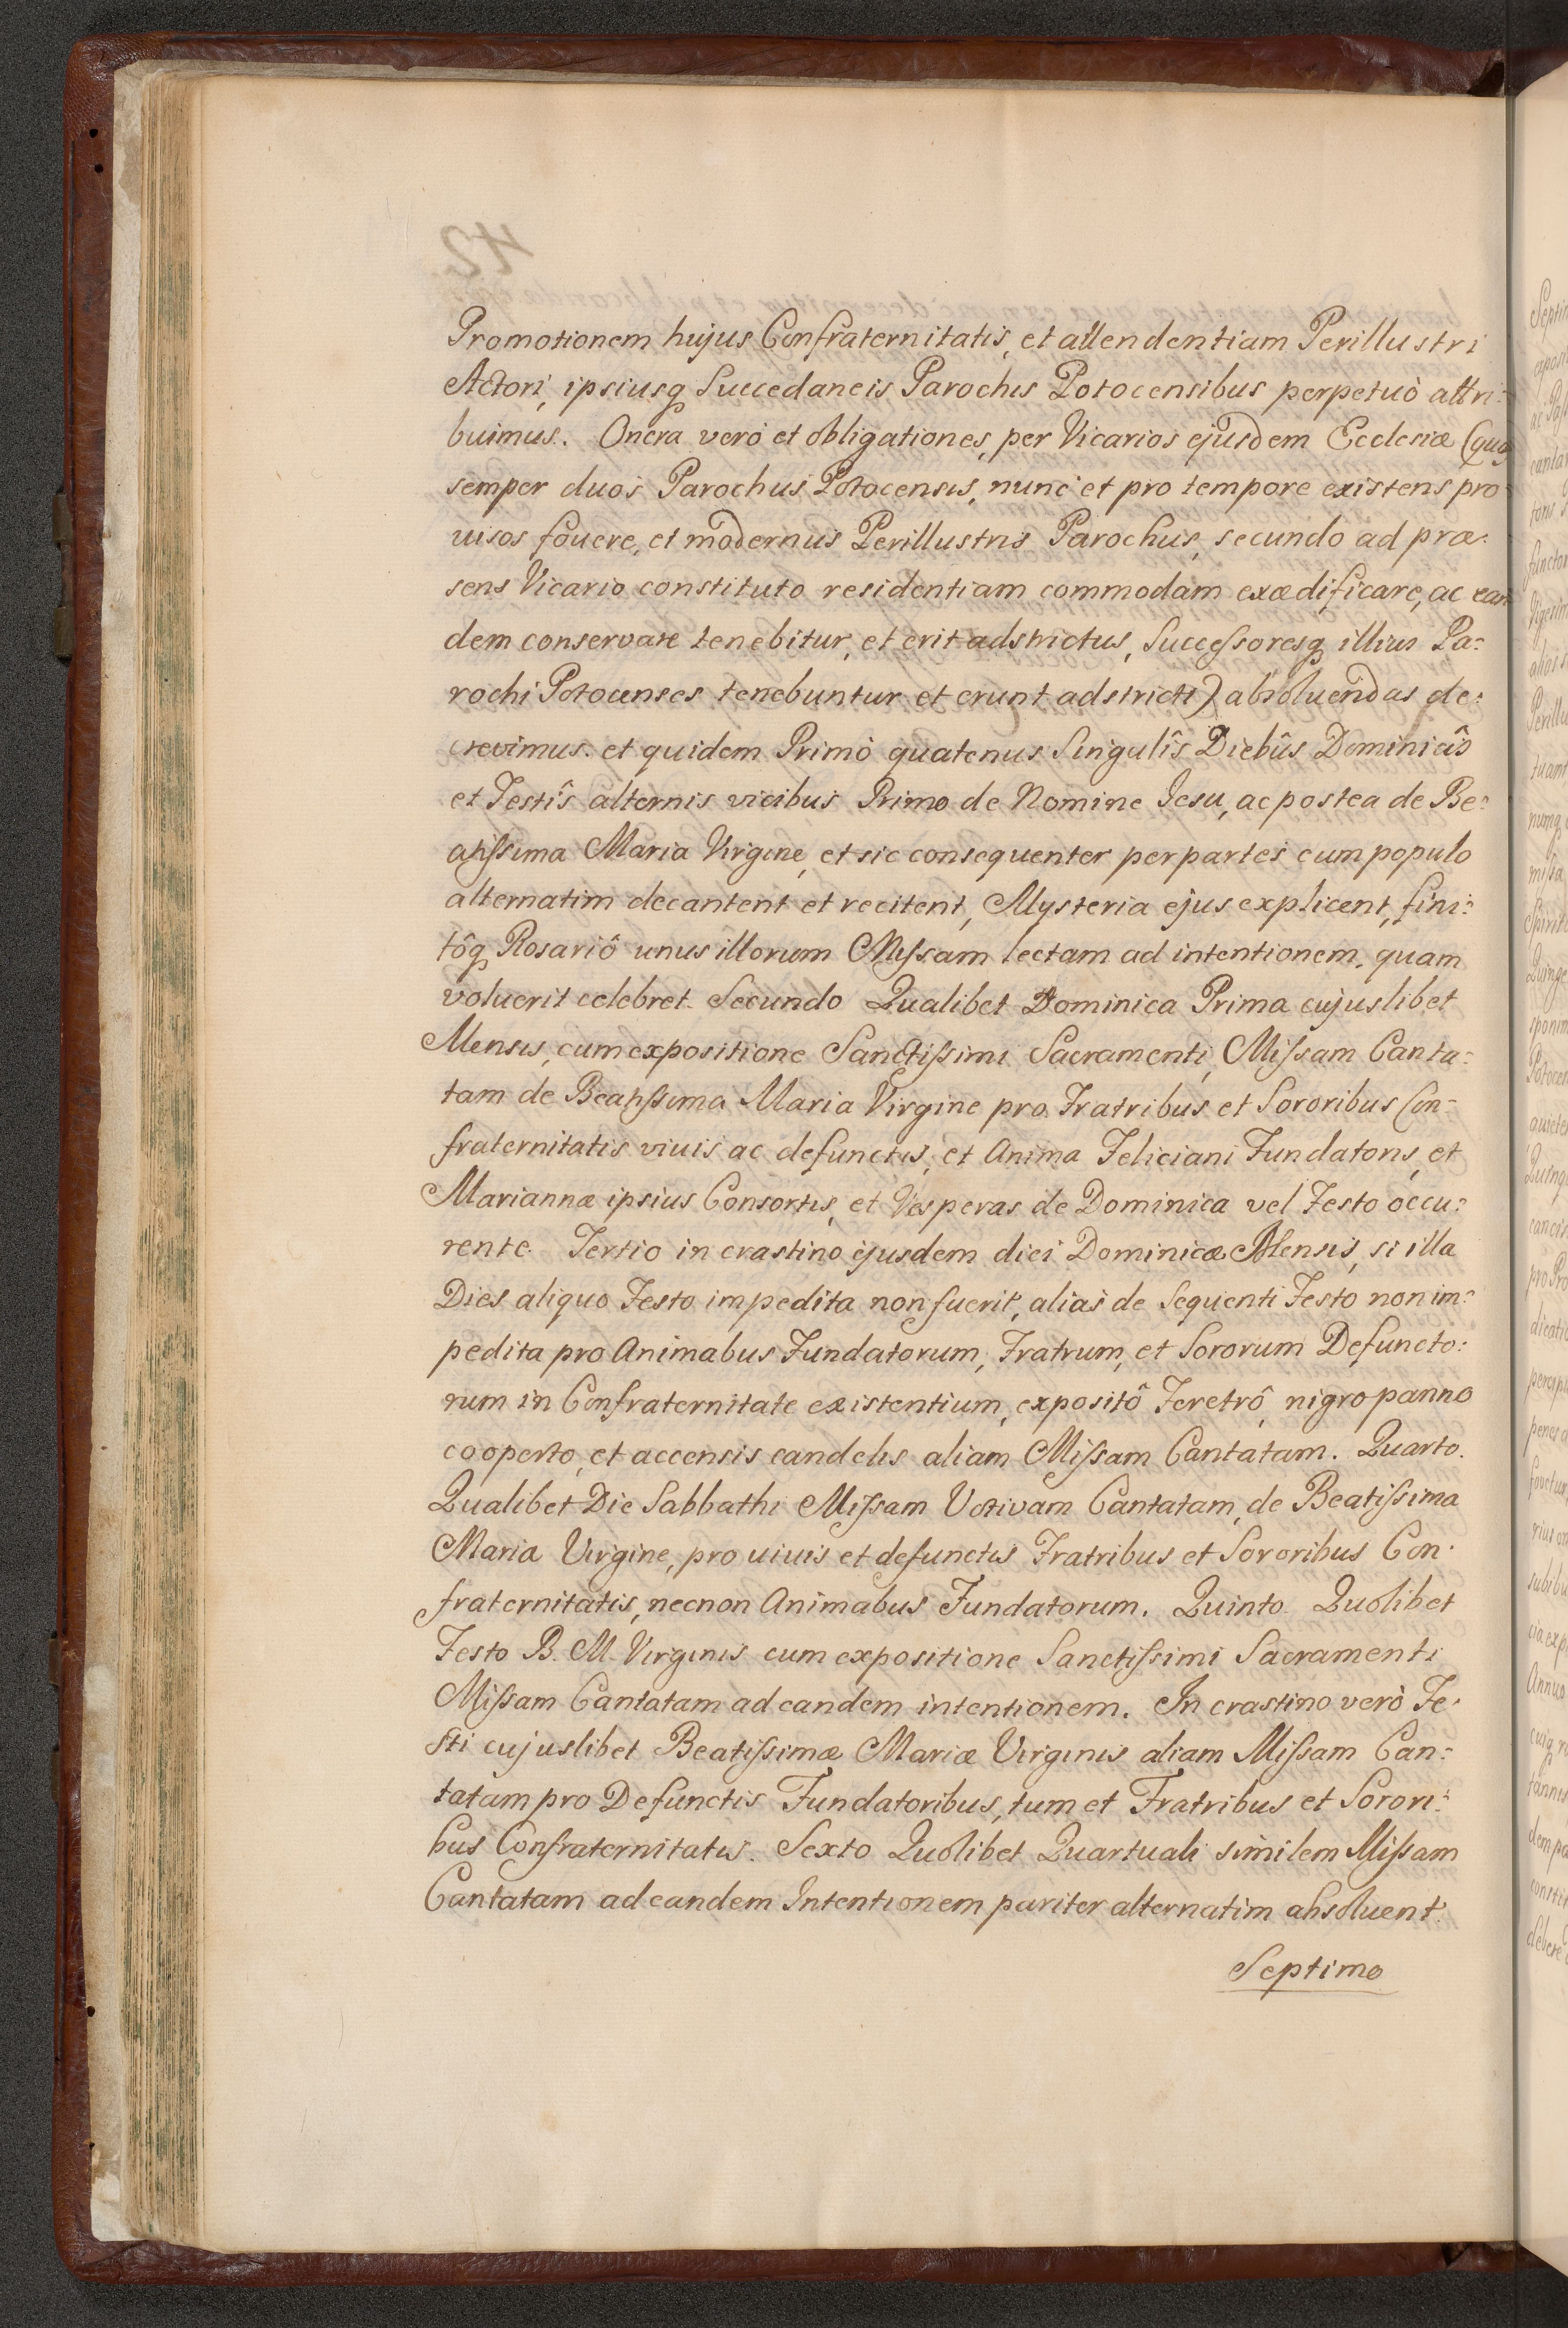 Promotionem hujus Confraternitatis, et attendentiam Perillustri
Actori, ipsiusq Succedaneis Parochis Potocensibus perpetuò attri:
buimus. Onera verò et obligationes, per Vicarios ejusdem Ecclesiæ (quos
semper duos Parochus Potocensis, nunc et pro tempore existens pro
uisos fouere, et modernus Perillustris Parochus, secundo ad præ:
sens Vicario constituto residentiam commodam exædificare, ac ean
dem conservare tenebitur, et erit adstrictus, Successoresq illius Pa:
rochi Potocenses tenebuntur et erunt adstricti) absoluendas de:
crevimus. et quidem Primò quatenus Singulîs Diebûs Dominicîs
et Festîs alternis vicibus Primo de Nomine Jesu, ac postea de Be:
atissima Maria Virgine, et sic consequenter per partes cum populo
alternatim decantent et recitent, Mysteria ejus explicent, fini:
tôq Rosariô unus illorum Missam lectam ad intentionem, quam
voluerit celebret. Secundo Qualibet Dominica Prima cujuslibet
Mensis, cum expositione Sanctissimi Sacramenti, Missam Canta:
tam de Beatissima Maria Virgine pro Fratribus et Sororibus Con:
fraternitatis viuis ac defunctis, et Anima Feliciani Fundatoris, et
Mariannæ ipsius Consortis, et Vesperas de Dominica vel Festo occu:
rente. Tertio in crastino ejusdem diei Dominicæ Mensis, si illa
Dies aliquo Festo impedita non fuerit, alias de Sequenti Festo non im:
pedita pro Animabus Fundatorum, Fratrum, et Sororum Defuncto:
rum in Confraternitate existentium, expositô Feretrô nigro panno
cooperto, et accensis candelis aliam Missam Cantatam. Quarto.
Qualibet Die Sabbathi Missam Votivam Cantatam, de Beatissima
Maria Virgine, pro uiuis et defunctis Fratribus et Sororibus Con:
fraternitatis, necnon Animabus Fundatorum. Quinto Quolibet
Festo B. M. Virginis cum expositione Sanctissimi Sacramenti
Missam Cantatam ad eandem intentionem. In crastino verò Fe:
sti cujuslibet Beatissimæ Mariæ Virginis aliam Missam Can:
tatam pro Defunctis Fundatoribus, tum et Fratribus et Sorori:
bus Confraternitatis. Sexto Quolibet Quartuali similem Missam
Cantatam ad eandem Intentionem pariter alternatim absoluent.
Septimo